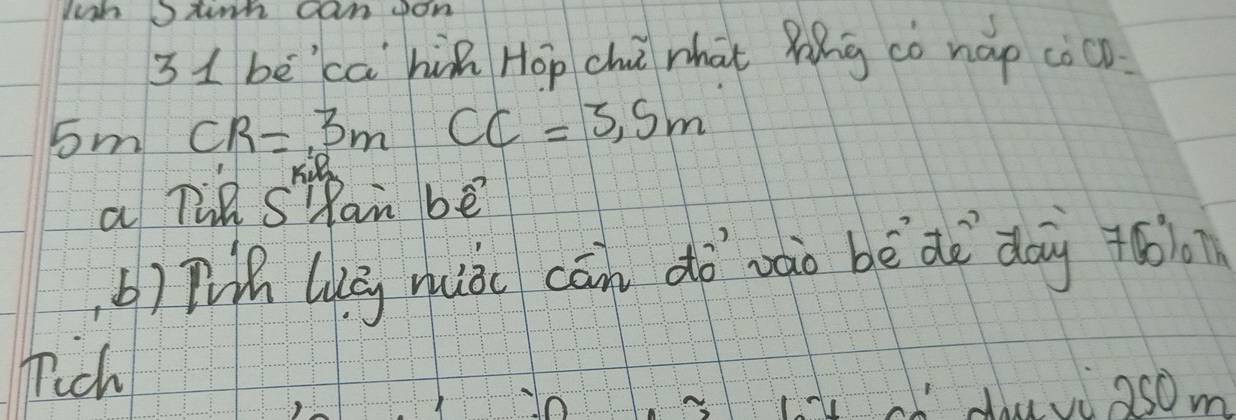 Tính S xinh cần sơn
31 bể cá hình Hộp chữ nhật không có nắp có CD=
5m CR= 3m CC = 3,5m
a Tính S kính làm bể
b) Tính lượng nước cần đổ vào bể để đầy 75% Th
Tích
có chu vi 250 m